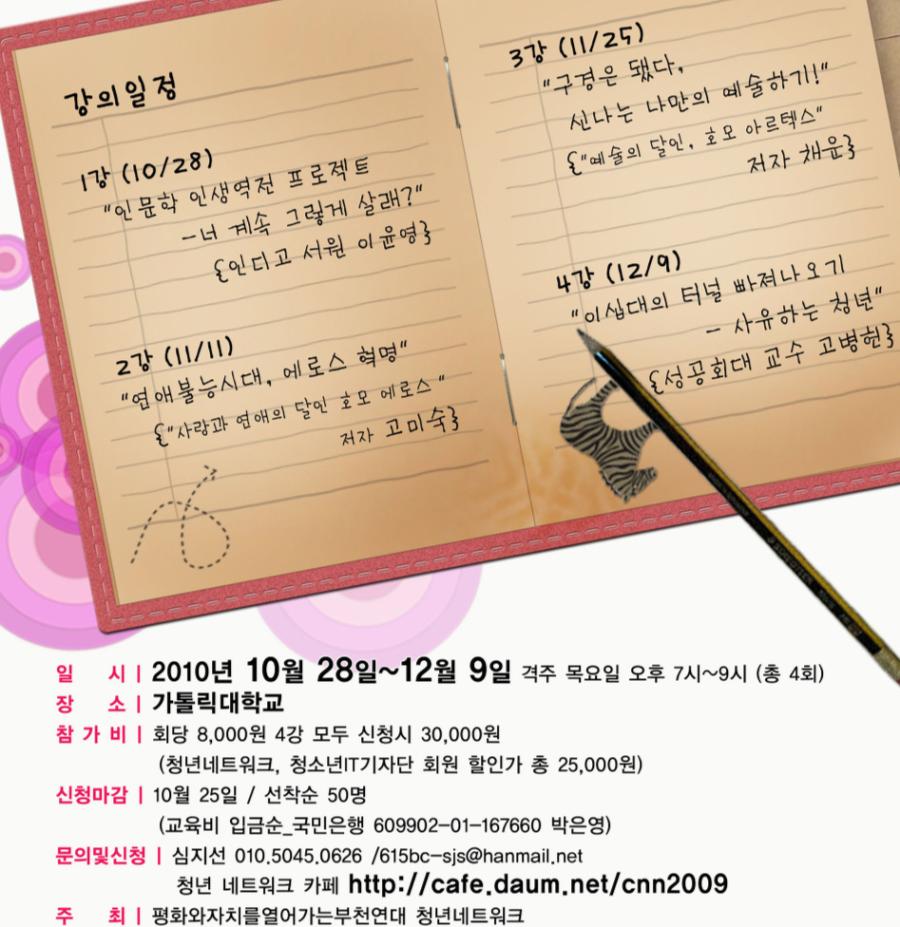 강의일정
1강 (10/28)
"인문학 인생역전 프로젝트
-너 계속 그렇게 살래?"
{인디고 서원 이윤영}
2강 (11/11)
"연애불능시대, 에로스 혁명"
{"사랑과 연애의 달인 호모 에로스"
저자 고미숙}
3강 (11/25)
"구경은 됐다,
신나는 나만의 예술하기!"
{"예술의 달인, 호모 아르텍스"
저자 채운}
4강 (12/9)
"이십대의 터널 빠져나오기
- 사유하는 청년"
{성공회대 교수 고병헌}
일 시 | 2010년 10월 28일~12월 9일 격주 목요일 오후 7시~9시 (총 4회)
장 소 | 가톨릭대학교
참 가 비 | 회당 8,000원 4강 모두 신청시 30,000원
(청년네트워크, 청소년IT기자단 회원 할인가 총 25,000원)
신청마감 | 10월 25일 / 선착순 50명
(교육비 입금순_국민은행 609902-01-167660 박은영)
문의및신청 | 심지선 010.5045.0626 /615bc-sjs@hanmail.net
청년 네트워크 카페 http://cafe.daum.net/cnn2009
주 최 | 평화와자치를열어가는부천연대 청년네트워크